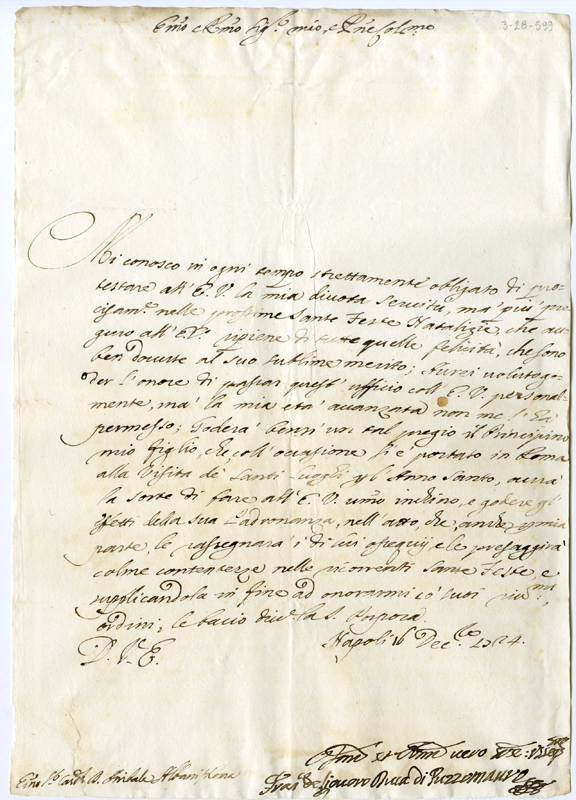 3-28-599
Emo e Rmo Sigr. mio, e Pne Colmo
Mi conosco in ogni tempo strettamente obligato di pro-
testare all' E. V. la mia divota servitù, ma più pre
cisamte. nelle prossime Sante Feste Natalizie, che au-
guro all' E.V. ripiene di tutte quelle felicità, che sono
ben dovute al suo sublime merito; Aurei voluto go-
der l'onore di passar quest' ufficio coll' E. V. personal-
mente, ma la mia età avanzata non me l' hà
permesso; Goderà bensì un tal pregio il Principino
mio figlio, che coll' occasione si è portato in Roma
alla Visita de' Santi Luoghi l'Anno Santo, aurà
la sorte di fare all' E. V. umo inchino, e godere gl'
effetti della sua Padronanza, nell' atto, che anche mia
parte, le rassegnarà i di lui ossequij, e le presaggirà
colme contentezze nelle ricorrenti Sante Feste, e
supplicandola in fine ad onorarmi co' suoi
ordini; le bacio la S. Porpora.
Napoli 16 Decbre 1724.
D. V. E.
vero
Duca di Pozzomauro
Emo Sr. Card. D. Annibale Albani Roma